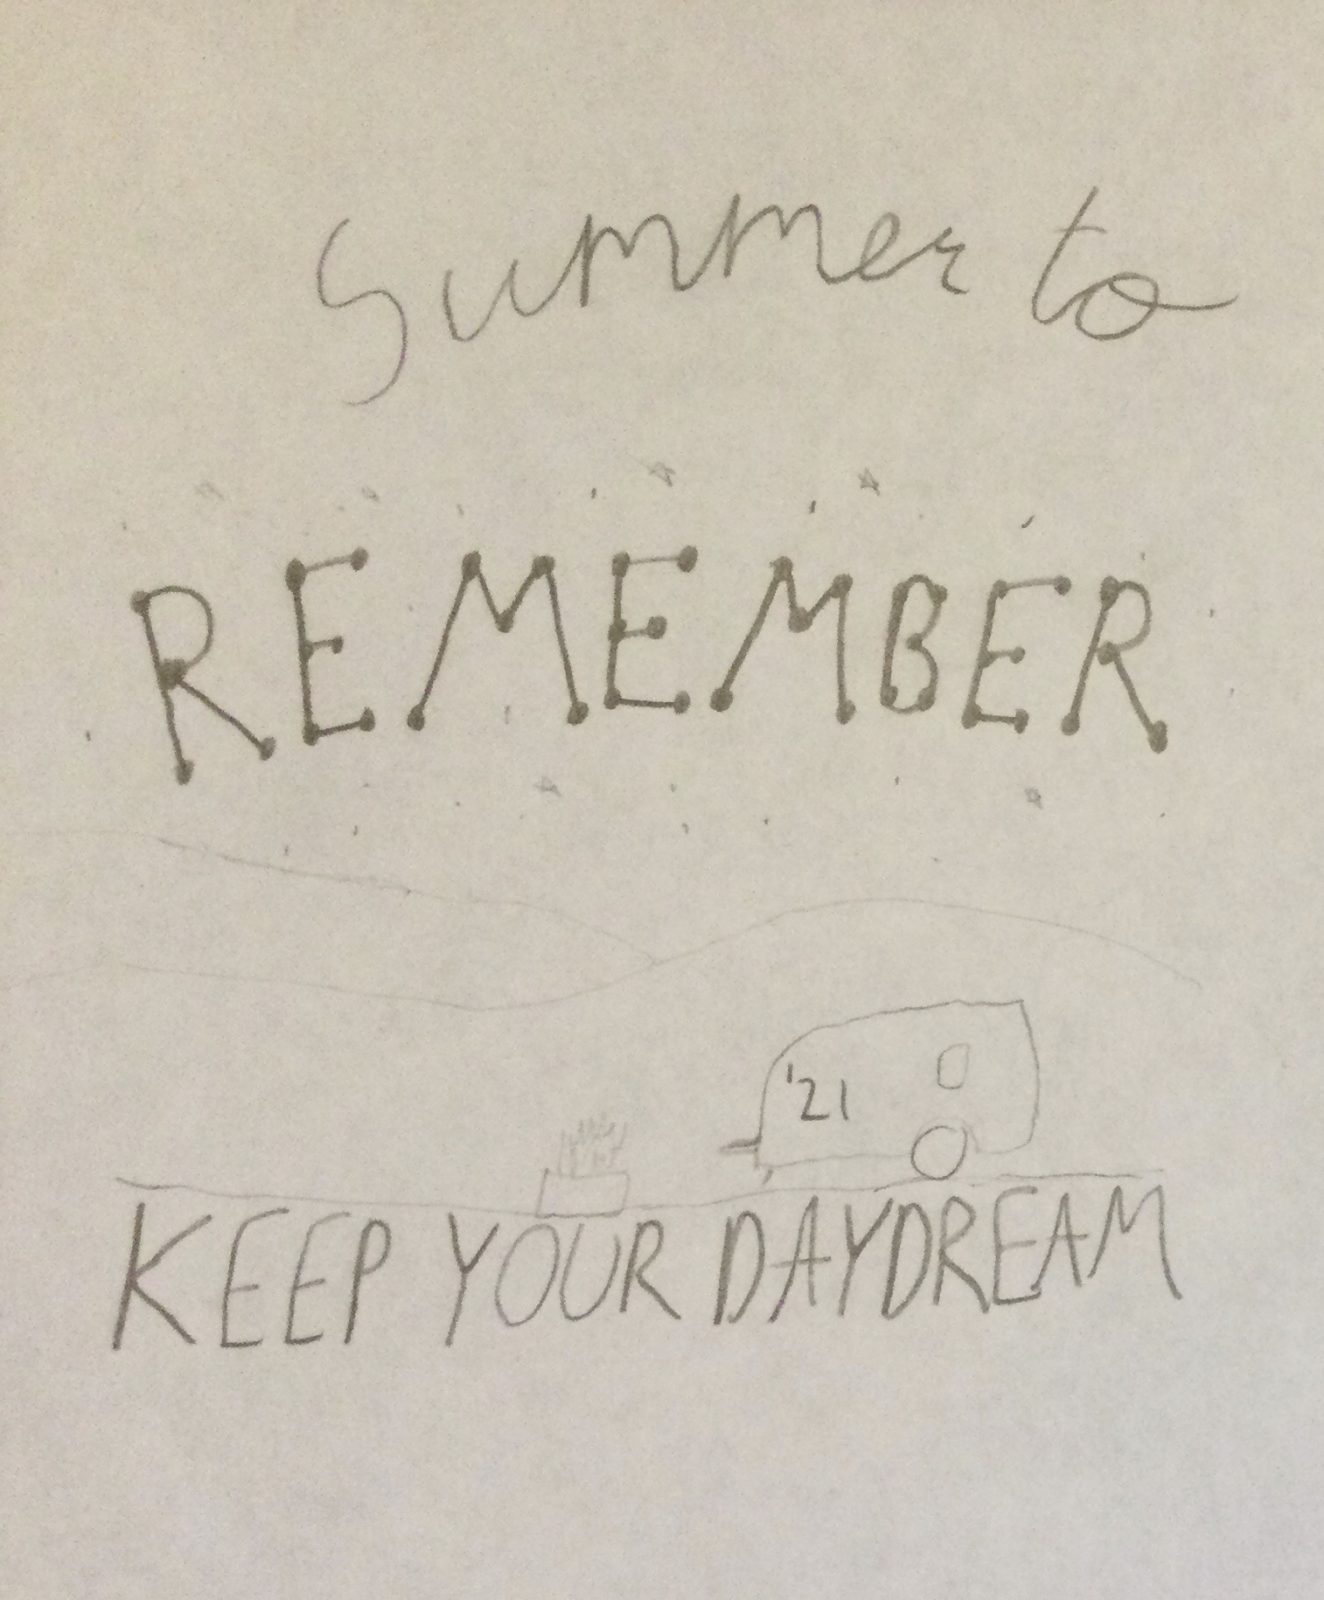 Summer to
REMEMBER
'21
KEEP YOUR DAYDREAM